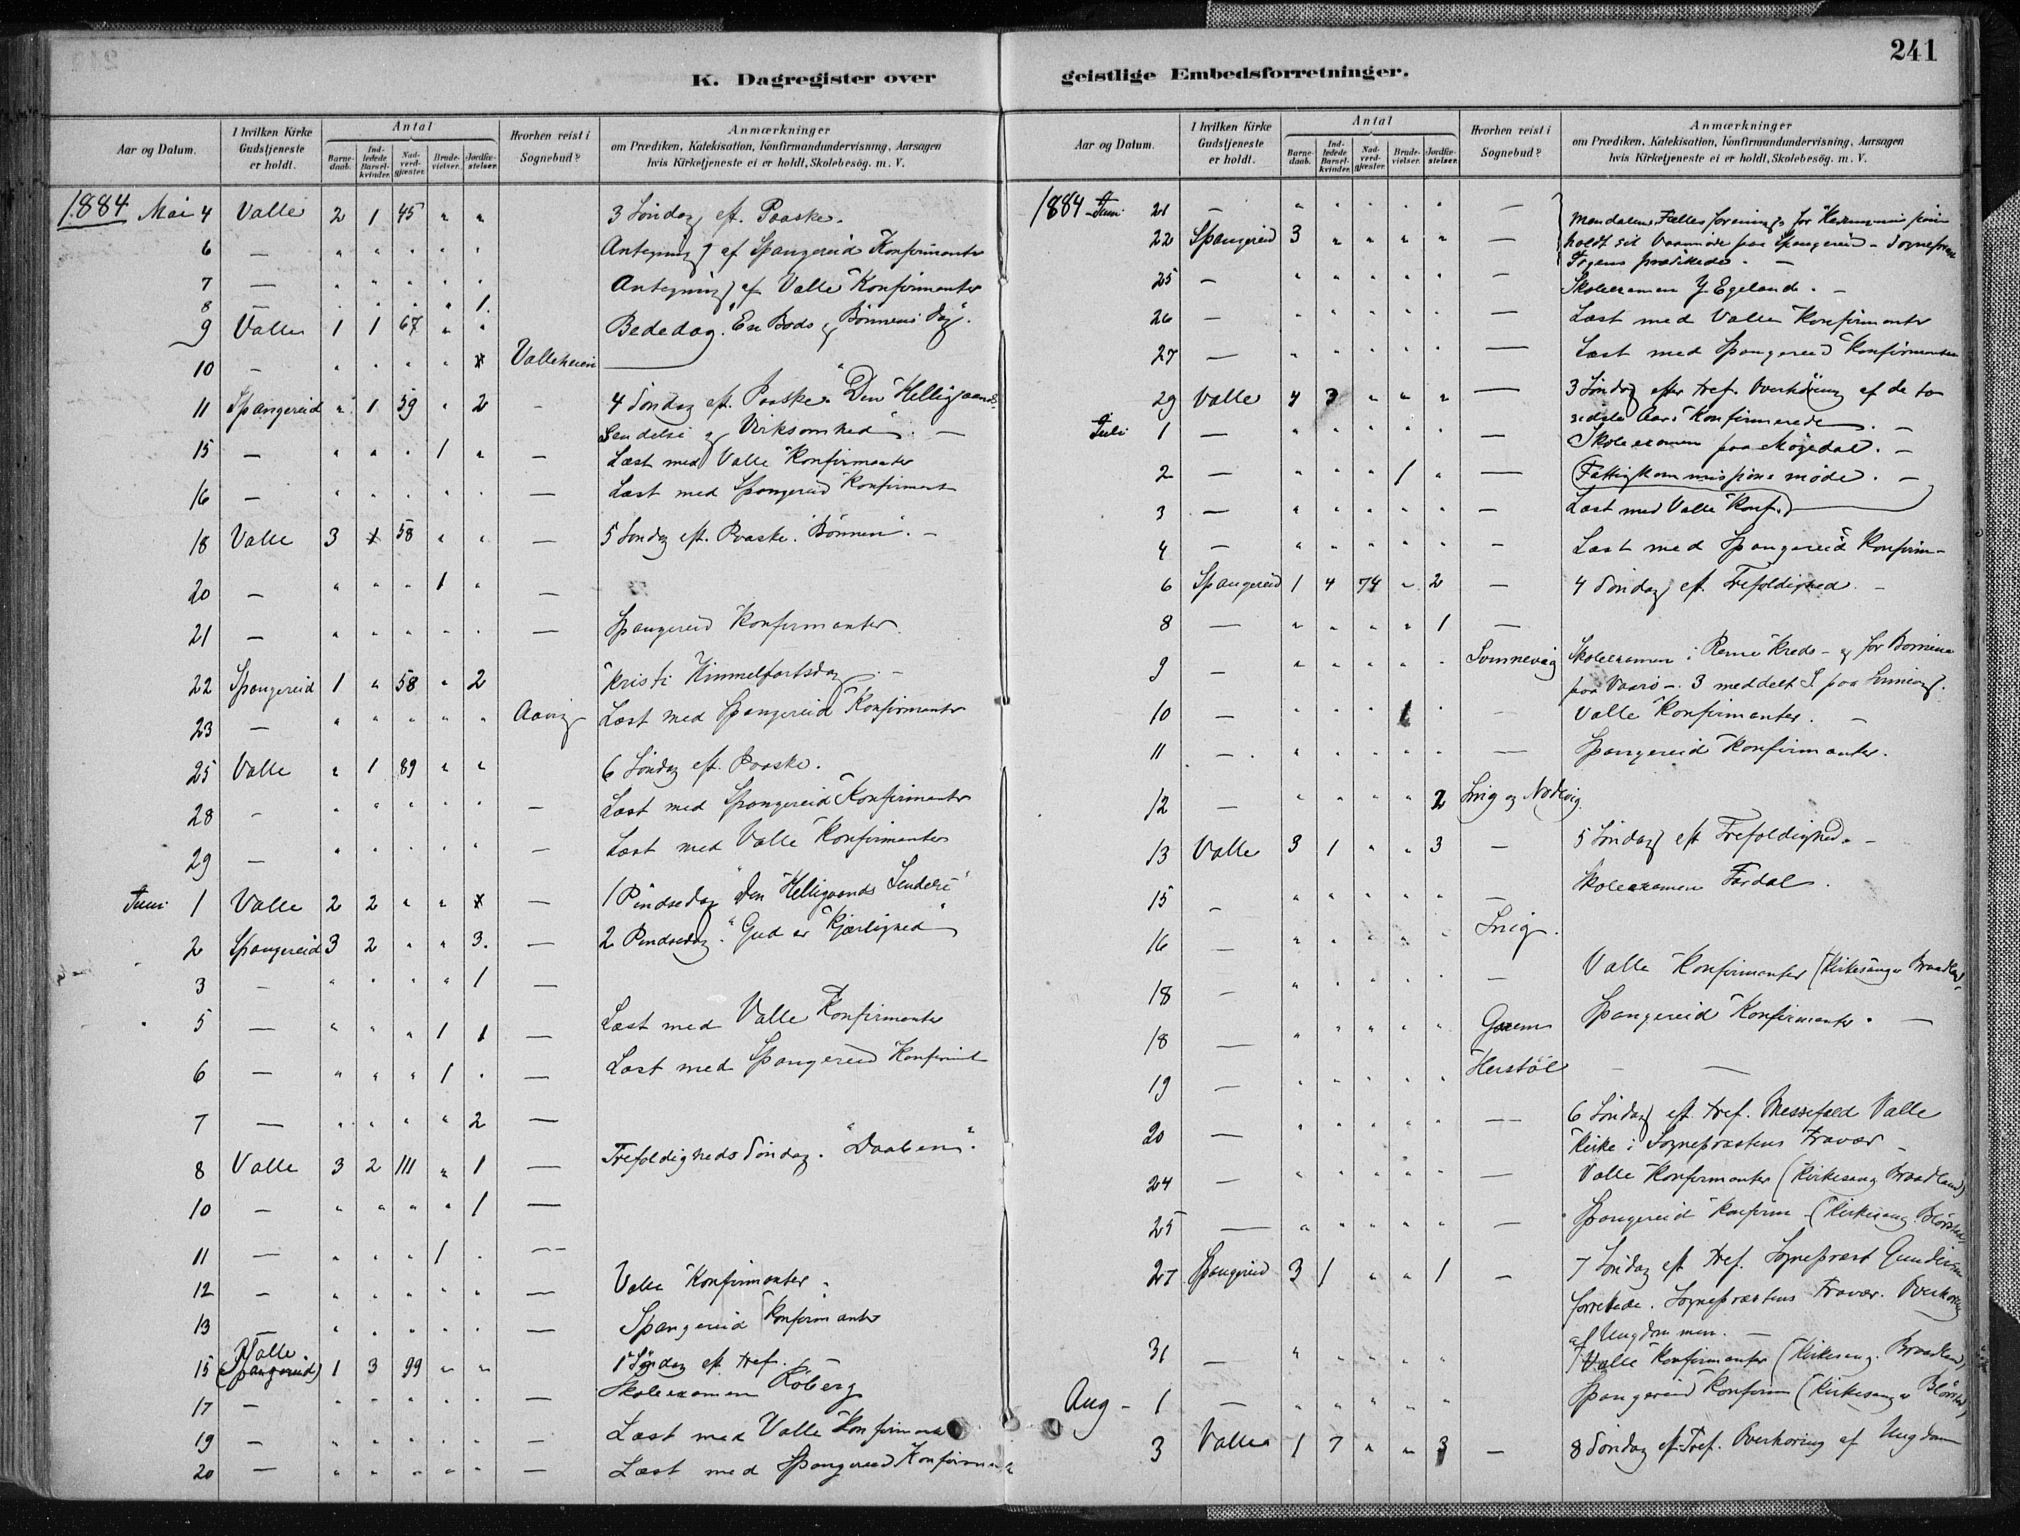 241
K. Dagregister over geistlige Embedsforretninger.
Aar og Datum.
I hvilken Kirke Gudstjeneste er holdt.
Antal
Barnedaab.
Indledede Barselkvinder.
Nadverdgjæster.
Brudevielser.
Jordfæstelser.
Hvorhen reist i Sognebud?
Anmærkninger
om Prædiken, Katekisation, Konfirmandundervisning, Aarsagen
hvis Kirketjeneste ei er holdt, Skolebesög. m. V.
1884 Mai 4 Valle 2 1 45 " " 3 Söndag eft. Paaske.
6 — " " " " " Antegning af Spangereid Konfirmanter
7 — " " " " " Antegning af Valle Konfirmanter
8 — " " " " 1.
9 Valle 1 1 67 " " Bededag. En Bods og Bönnens Dag.
10 — " " " " Valleheien
11 Spangereid " 1 59 " 2 - 4 Söndag eft. Paaske. "Den Helligaands
Sendelse og Virksomhed". —
15 — " " " 1 " — Læst med Valle Konfirmanter
16 — " " " " " — Læst med Spangereid Konfirmant
18 Valle 3 58 " " — 5 Söndag eft. Paaske. Bönnen. —
20 — " " " 1 " —
21 — " " " " " — Spangereid Konfirmanter.
22 Spangereid 1 " 58 " 2 Kristi Himmelfartsdag. —
23 — " " " " " Læst med Spangereid Konfirmanter
25 Valle " 1 89 " " 6 Söndag eft. Paaske.
28 - " " " " " — Læst med Spangereid Konfirmanter
29 — " " " " " — Læst med Valle Konfirmanter
Juni 1 Valle 2 2 " " — 1 Pindsedag "Den Helligaands Sendelse"
2 Spangereid 3 2 " " 3. — 2 Pindsedag. "Gud er Kjærlighed"
3 — " " " " 1 —
5 — " " " 1 1 — Læst med Valle Konfirmanter
6 — " " " 1 . — Læst med Spangereid Konfirmt
7 — " " " " 2 —
8 Valle 3 2 111 " 1 — Trefoldigheds Söndag. "Daaben".
10 — " " " " 1 —
11 — " " " 1 . —
12 — " " " " " — Valle Konfirmanter.
13 — " " " " " — Spangereid Konfirmanter
Valle
15 (Spangereid) 1 3 99 " " 1 Söndag eft. tref.
17 — " " " " " — Skoleexamen Röberg
19 — " " " " " — Læst med Valle Konfirmant
20 — " " " " " — Læst med Spangereid Konfirmant
Aar og Datum.
I hvilken Kirke Gudstjeneste er holdt.
Antal
Barnedaab.
Indledede Barselkvinder.
Nadverdgjæster.
Brudevielser.
Jordfæstelser.
Hvorhen reist i Sognebud?
Anmærkninger
om Prædiken, Katekisation, Konfirmandundervisning, Aarsagen
hvis Kirketjeneste ei er holdt, Skolebesög. m. V.
1884 Juni 21 — " " " " " — Mandalens Fællesforening for Hedningemission
22 Spangereid 3 " " " " — holdt sit Vaarmöde paa Spangereid - Sognepræst
prædikede. —
25 — " " " " " — Skoleexamen Egeland. —
26 — " " " " " — Læst med Valle Konfirmanter
27 — " " " " " — Læst med Spangereid Konfirmanter
29 Valle 4 3 " " " — 3 Söndag efter tref. Overhöring af de to
sidste Aars Konfirmerede. —
Juli 1 — " " " " " — Skoleexamen paa Mögedal. —
2 — " " " 1 " — Fattigkommissionsmöde. —
3 — " " " " " — Læst med Valle Konf.
4 — " " " " " — Læst med Spangereid Konfirm—
6 Spangereid 1 4 74 " 2 — 4 Söndag eft. Trefoldighed. —
8 — " " " " 1 —
9 — " " " " . Svinnevaag Skoleexamen i Rême Kreds - og for Börnene
paa Vaarö -. 3 meddelt S. paa
10 — " " " 1 . — Valle Konfirmanter. —
11 — . " . . . — Spangereid Konfirmanter.
12 — " " " " 2 Snig og Nodvig
13 Valle 3 1 " " 3 — 5 Söndag eft Trefoldighed. —
15 — " " " " " — Skoleexamen Fardal.
16 — " " " " . Snig.
18 — " " " " . — Valle Konfirmanter (Kirkesanger Braadland)
18 — " " " " " Spangereid Konfirmanter. —
19 — " " " " " Herstöl — —
20 — " " " " " — 6 Söndag eft tref. Messefald Valle
Kirke i Sognepræstens Fravær —
24 — " " " " " — Valle Konfirmanter (Kirkesang Braadland)
25 — " " " " " — Spangereid Konfirm - (Kirkesang.
27 Spangereid 3 1 " " 1 — 7 Söndag eft tref. Sognepræst Gundersen
forrettede. Sognepræstens Fravær. Overhöring
af Ungdommen. —
31 — " " " " " Valle Konfirmanter (Kirkesang. Braadland)
Aug - 1 — " " " " " Spangereid Konfirm (Kirkesanger
3 Valle 1 7 " " 3 — 8 Söndag eft Tref. Overhöring af Ungdom